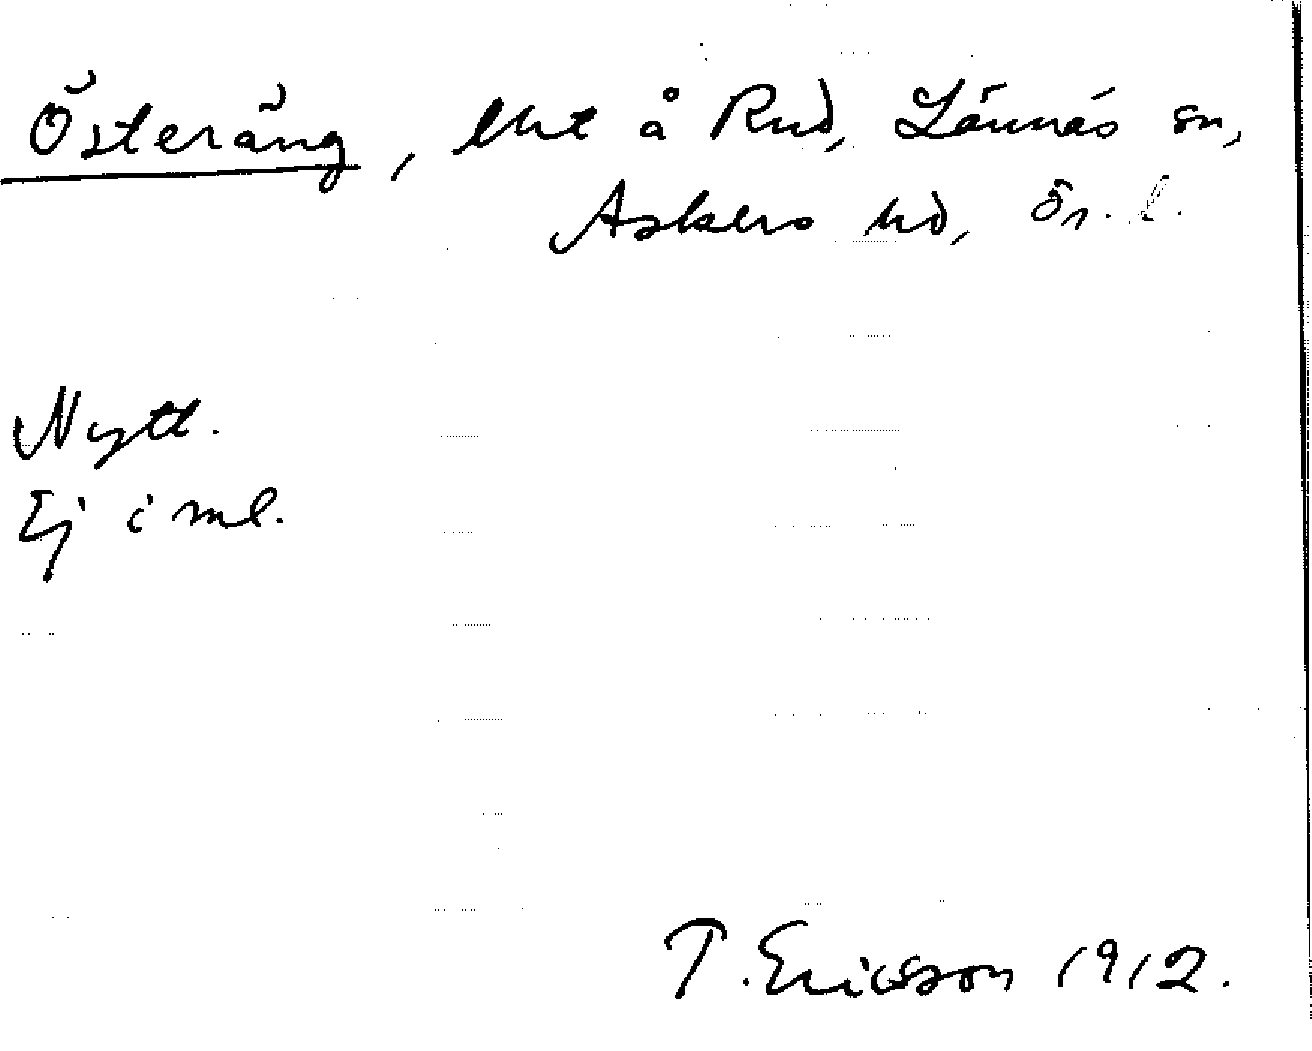 Österäng, lht å Rud, Lännäs sn,
Askers hd, Ör. l.
Nytt.
Ej i ml.
T. Ericsson 1912.